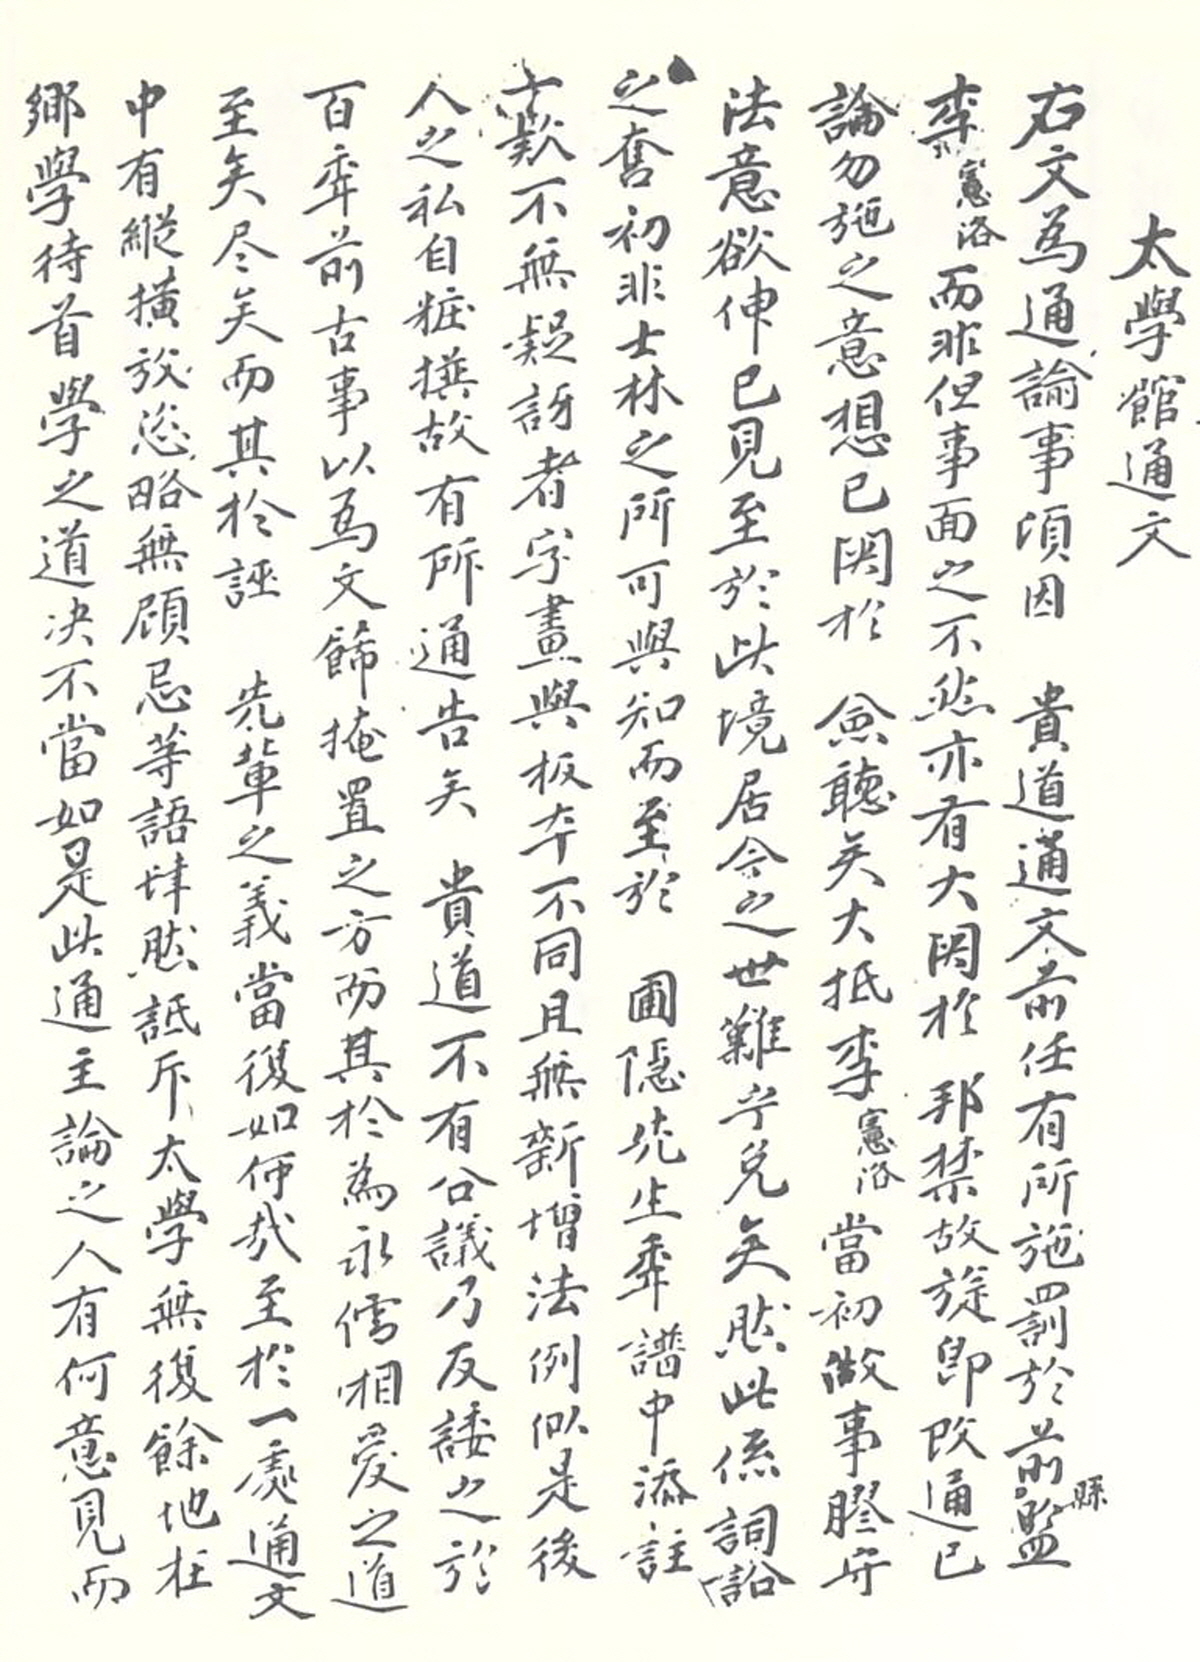 太學館通文
右文為通諭事頃因 貴道通文前任有所施罰於前縣監
李憲洛而非但事面之不然亦有大関於 邦禁故旋即改通已
論勿施之意想已関於 僉聽矣大抵李憲洛當初做事膠守
法意欲伸己見至於此境居今之世難乎免矣然此係詞訟
之奪初非士林之所可與知而至於 圃隱先生年譜中添註
款不無疑訝者字畫與板本不同且無新增法例似是後
人之私自粧撰故有所通告矣 貴道不有公議乃反諉之於
百年前古事以為文餙掩置之方而其於為永儒相愛之道
至矣尽矣而其於誣 先輩之義當復如何哉至於一處通文
中有縱橫放恣略無顧忌等語肆然詆斥太學無復餘地在
鄉學待首學之道决不當如是此通主論之人有何意見而